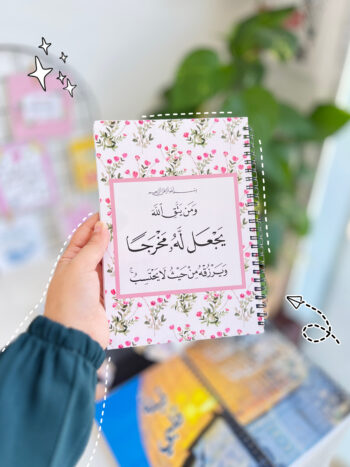 بسم الله الرحمن الرحيم
وَمَن يَتَّقِ ٱللَّهَ
يَجْعَل لَّهُۥ مَخْرَجًا
وَيَرْزُقْهُ مِنْ حَيْثُ لَا يَحْتَسِبُ